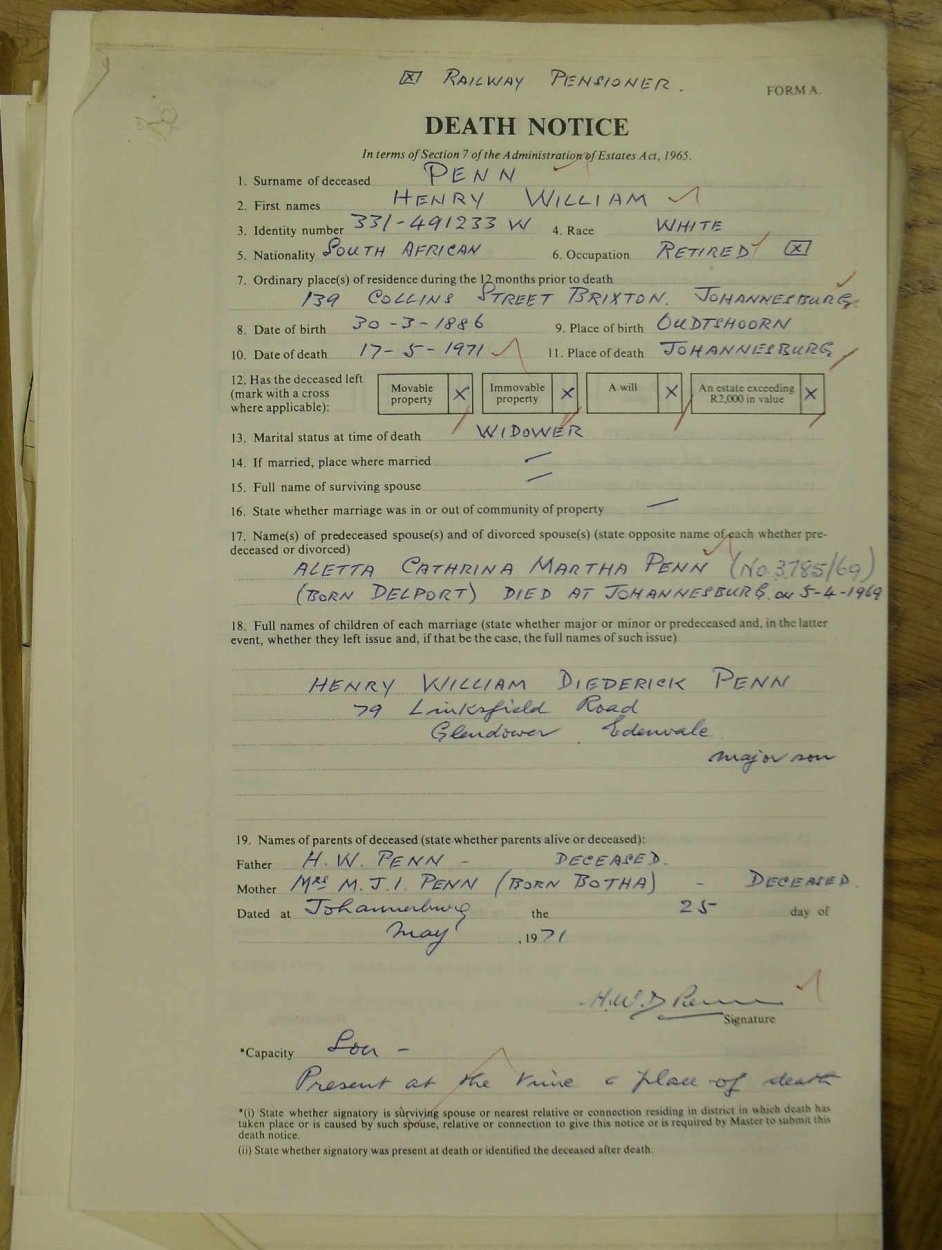 ☒ RAILWAY PENSIONER.
FORM A.
DEATH NOTICE
In terms of Section 7 of the Administration of Estates Act, 1965.
1. Surname of deceased PENN
2. First names HENRY WILLIAM
3. Identity number 331-491233 W 4. Race WHITE
5. Nationality SOUTH AFRICAN 6. Occupation RETIRED ☒
7. Ordinary place(s) of residence during the 12 months prior to death
139 COLLINS STREET BRIXTON. JOHANNESBURG
8. Date of birth 30-3-1886 9. Place of birth OUDTSHOORN
10. Date of death 17-5-1971 11. Place of death JOHANNESBURG
12. Has the deceased left Movable X Immovable X A will X An estate exceeding X
(mark with a cross property property R2,000 in value
where applicable):
13. Marital status at time of death WIDOWER
14. If married, place where married —
15. Full name of surviving spouse —
16. State whether marriage was in or out of community of property —
17. Name(s) of predeceased spouse(s) and of divorced spouse(s) (state opposite name of each whether pre-
deceased or divorced)
ALETTA CATHRINA MARTHA PENN (No. 3785/69)
(BORN DELPORT) DIED AT JOHANNESBURG. on 5-4-1969
18. Full names of children of each marriage (state whether major or minor or predeceased and, in the latter
event, whether they left issue and, if that be the case, the full names of such issue)
HENRY WILLIAM DIEDERICK PENN
79 Linksfield Road
Glendower, Edenvale
major son
19. Names of parents of deceased (state whether parents alive or deceased):
Father H. W. PENN - DECEASED.
Mother Mrs M. J. I. PENN (BORN BOTHA) - DECEASED.
Dated at Johannesburg the 25 day of
May, 1971
H.W.D Penn
Signature
*Capacity Son -
Present at the time & place of death
*(i) State whether signatory is surviving spouse or nearest relative or connection residing in district in which death has
taken place or is caused by such spouse, relative or connection to give this notice or is required by Master to submit this
death notice.
(ii) State whether signatory was present at death or identified the deceased after death.